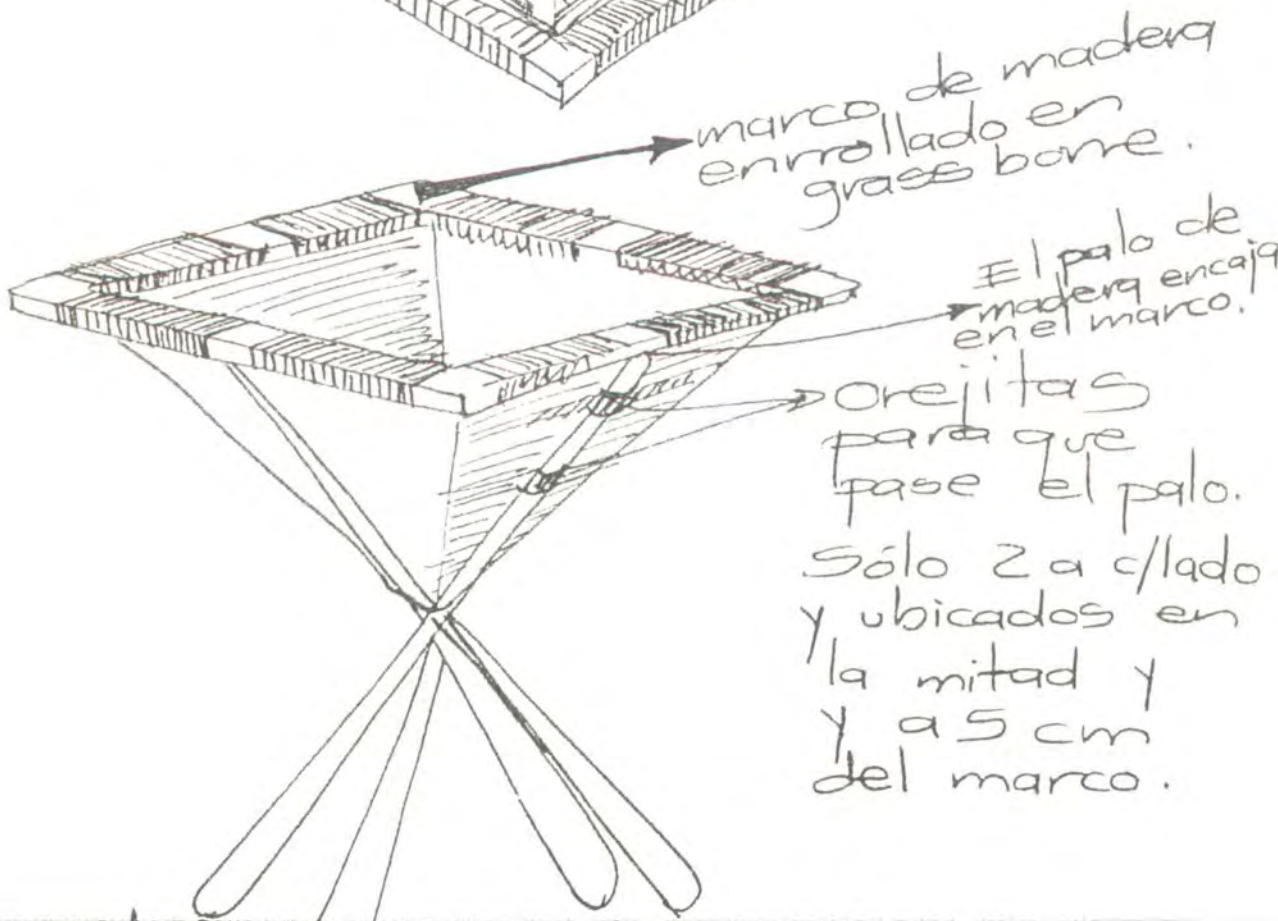 marco de madera
enrrollado en
grass borre.
El palo de
madera encaja
en el marco.
Orejitas
para que
pase el palo.
Sólo 2 a c/lado
y ubicados en
la mitad y
y a 5 cm
del marco.